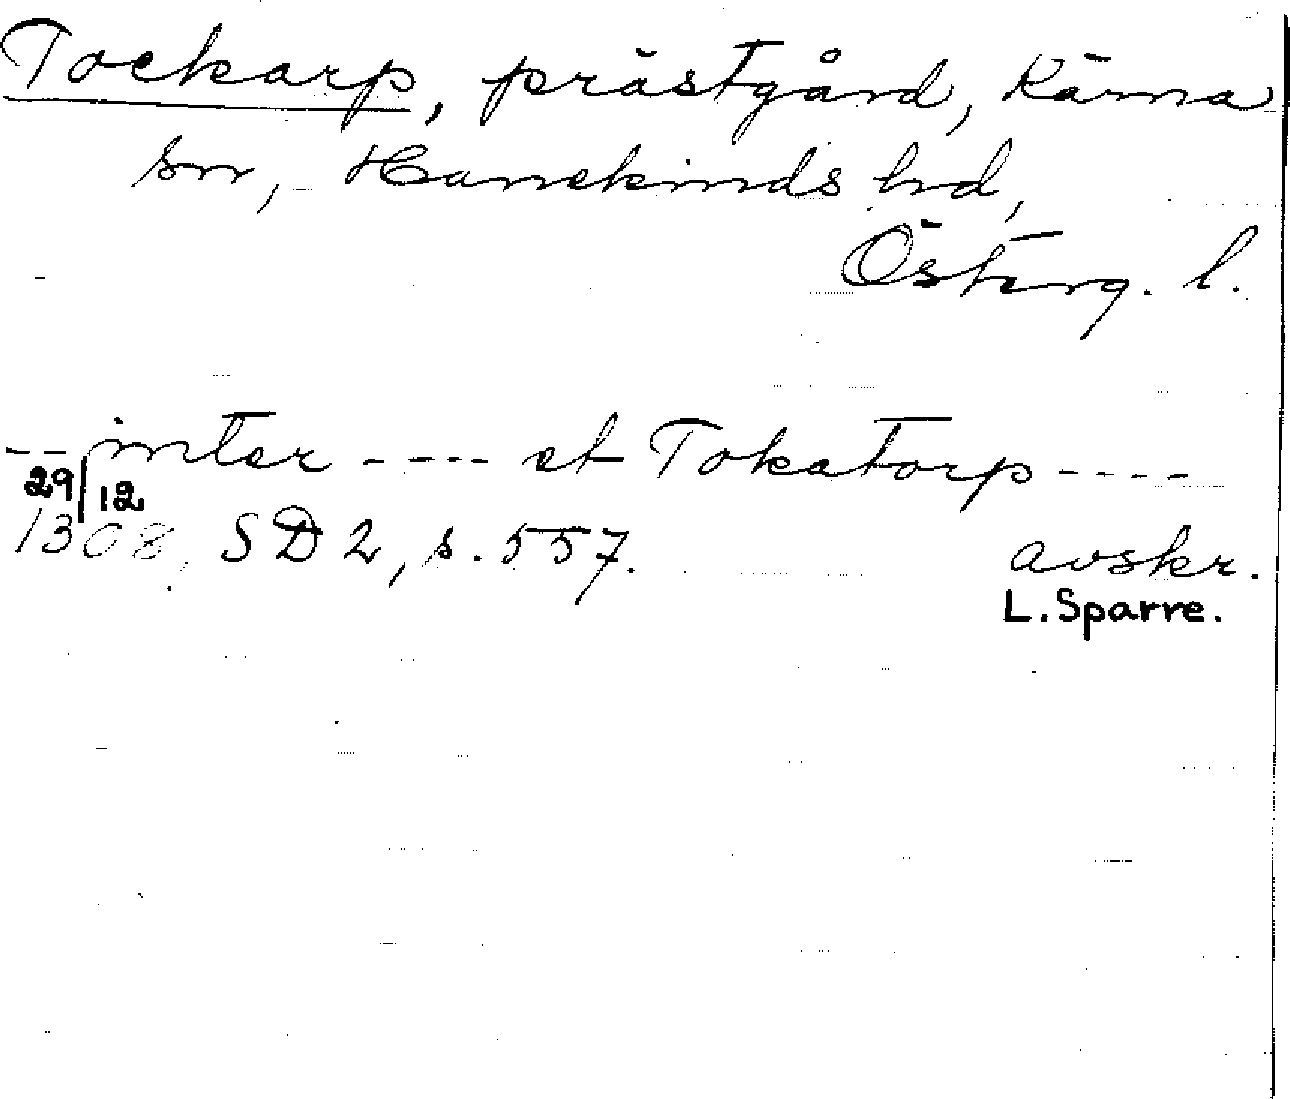 Tockarp, prästgård, Kärna
sn, Hanekinds hd,
Österg. l.
-- inter ---- et Tokatorp ----
29/12
1308, SD 2, s. 557. avskr.
L. Sparre.